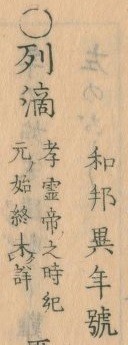 和邦異年號
〇列滴
孝靈帝之時紀
元始終未詳